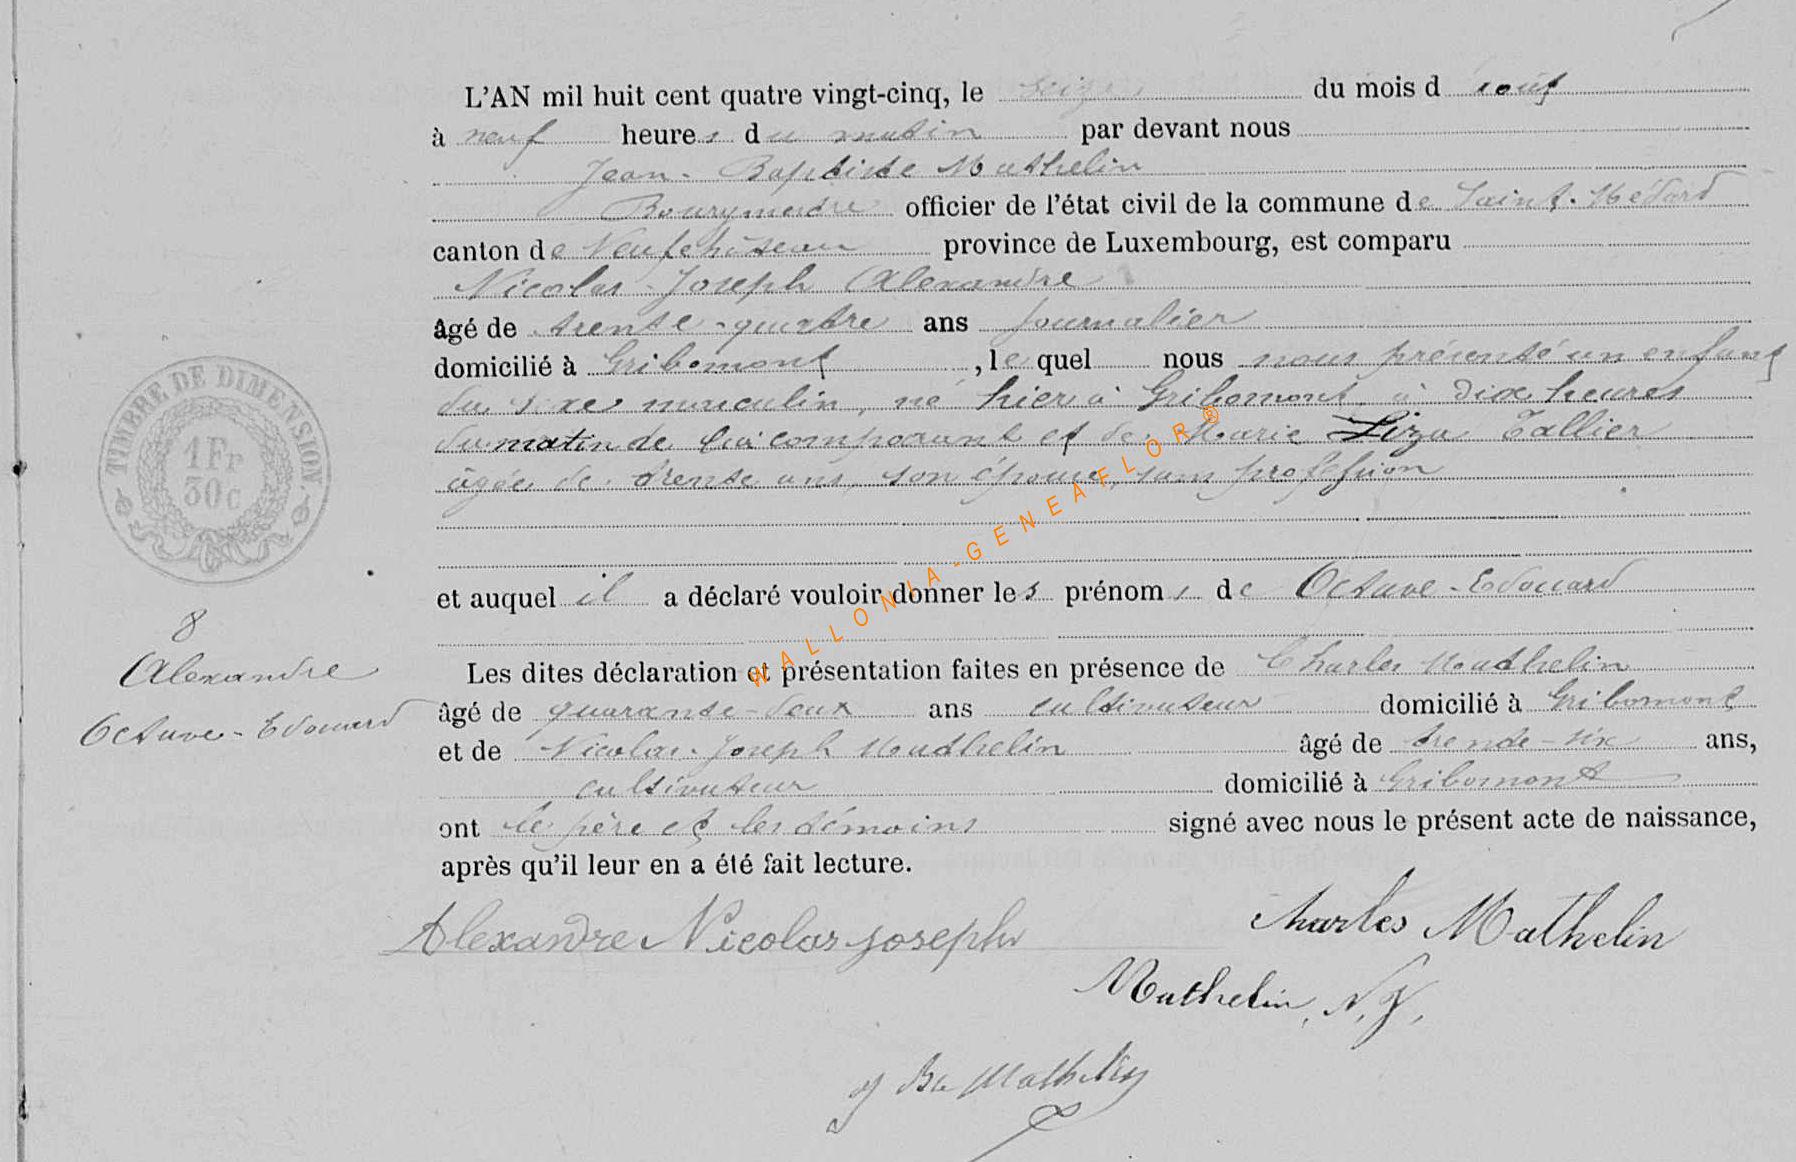 L'AN mil huit cent quatre vingt-cinq, le seize du mois d'août
à neuf heures du matin par devant nous
Jean-Baptiste Mathelin
Bourgmestre officier de l'état civil de la commune de Saint-Médard
canton de Neufchâteau province de Luxembourg, est comparu
Nicolas-Joseph Alexandre
âgé de trente-quatre ans journalier
domicilié à Gribomont, lequel nous nous présenté un enfant
du sexe masculin, né hier à Gribomont à dix heures
du matin de lui comparant et de Marie Liza Tallier
âgée de trente ans, son épouse, sans profession
et auquel il a déclaré vouloir donner les prénoms de Octave-Edouard
Les dites déclaration et présentation faites en présence de Charles Mathelin
âgé de quarante-deux ans cultivateur domicilié à Gribomont
et de Nicolas-Joseph Mathelin âgé de trente-six ans,
cultivateur domicilié à Gribomont
ont le père et les témoins signé avec nous le présent acte de naissance,
après qu'il leur en a été fait lecture.
Alexandre Nicolas joseph
Charles Mathelin
Mathelin, N. J.
J Bte Mathelin
TIMBRE DE DIMENSION
1 Fr
30c
8
Alexandre
Octave-Edouard
WALLONIA-GENEAFLOR®